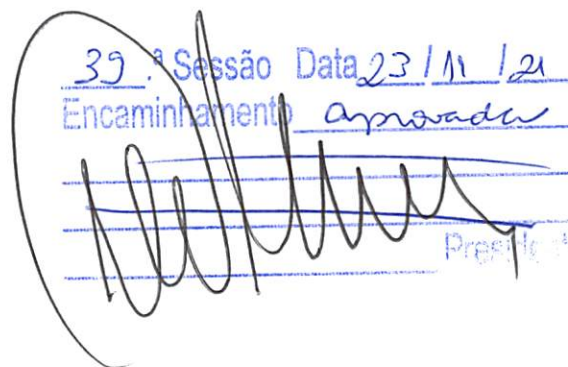 39.ª Sessão Data 23/11/21
Encaminhamento aprovada
Presidente